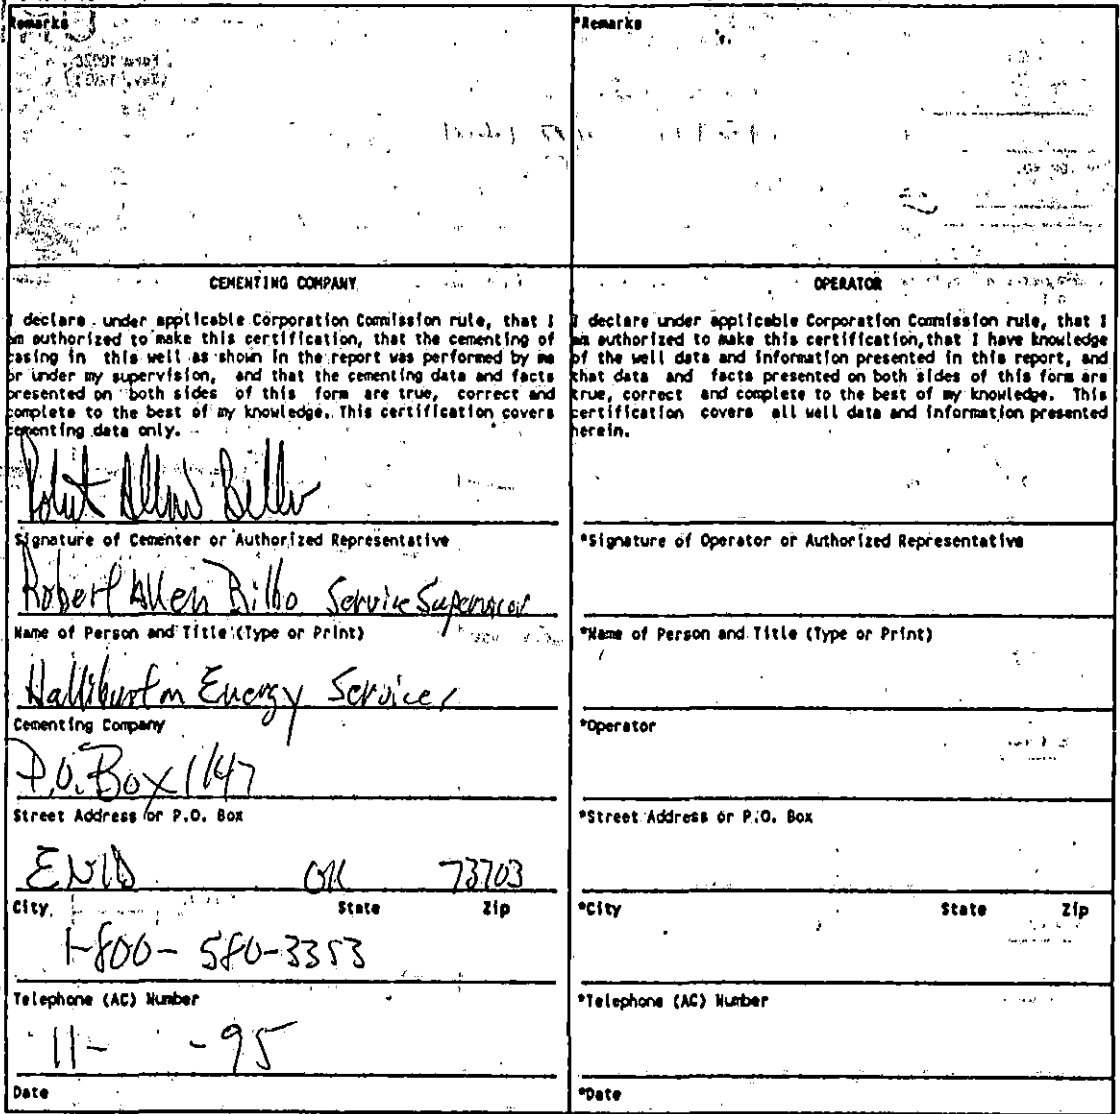 Remarks
CEMENTING COMPANY
I declare under applicable Corporation Commission rule, that I
am authorized to make this certification, that the cementing of
casing in this well as shown in the report was performed by me
or under my supervision, and that the cementing data and facts
presented on both sides of this form are true, correct and
complete to the best of my knowledge. This certification covers
cementing data only.
Signature of Cementer or Authorized Representative
Robert Allen Bilbo Service Supervisor
Name of Person and Title (Type or Print)
Halliburton Energy Services
Cementing Company
P.O. Box 1147
Street Address or P.O. Box
ENID OK 73703
City State Zip
1-800-580-3353
Telephone (AC) Number
11- -95
Date
*Remarks
OPERATOR
I declare under applicable Corporation Commission rule, that I
am authorized to make this certification, that I have knowledge
of the well data and information presented in this report, and
that data and facts presented on both sides of this form are
true, correct and complete to the best of my knowledge. This
certification covers all well data and information presented
herein.
*Signature of Operator or Authorized Representative
*Name of Person and Title (Type or Print)
*Operator
*Street Address or P.O. Box
*City State Zip
*Telephone (AC) Number
*Date